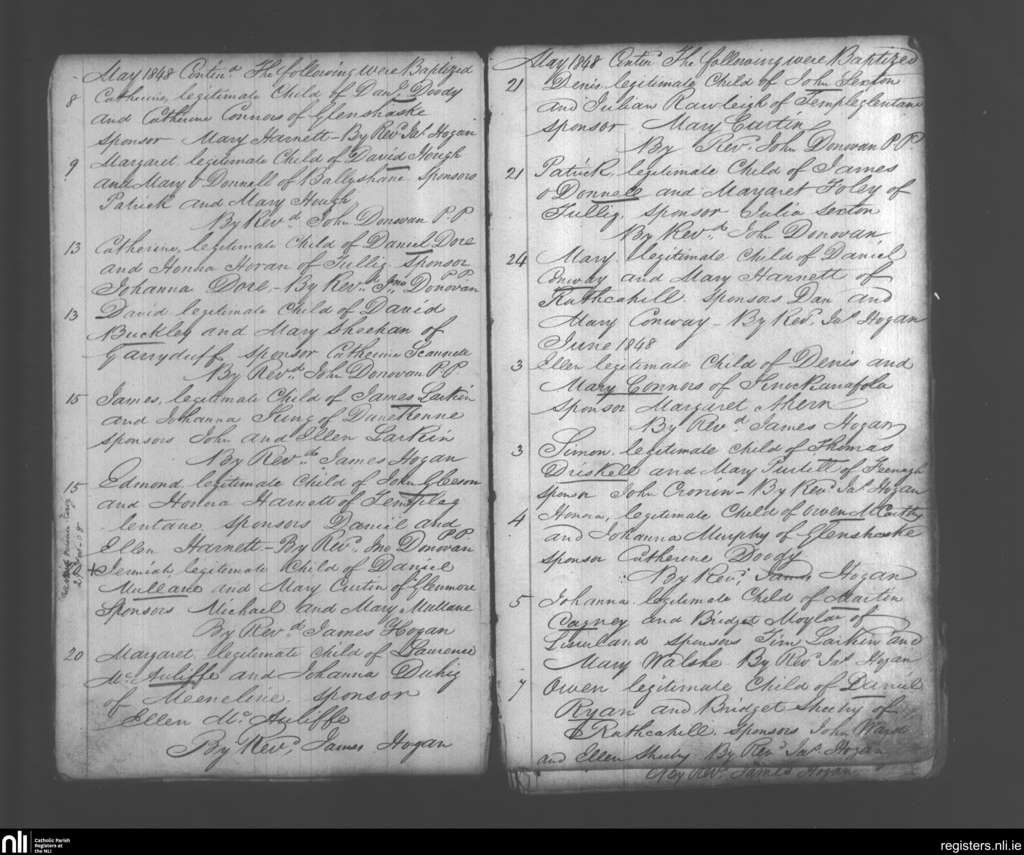 May 1848 Contind. The following were Baptized
8 Catherine, legitimate Child of Danl. Doody
and Catherine Connors of Glenshaske
sponsor Mary Harnett - By Revd. Jas. Hogan
9 Margaret legitimate Child of David Hough
and Mary O Donnell of Ballyshane Sponsors
Patrick and Mary Hough
By Revd. John Donovan P.P
13 Catherine, legitimate Child of Daniel Dore
and Honna Horan of Tullig sponsor
Johanna Dore, - By Revd. Jno Donovan P.P
13 David legitimate Child of David
Buckley and Mary Sheehan of
Garryduff sponsor Catherine
By Revd. John Donovan P.P
15 James, legitimate Child of James Larkin
and Johanna King of
sponsors John and Ellen Larkin
By Revd. James Hogan
15 Edmond legitimate Child of John Gleeson
and Honna Harnett of Templeg
lentane, sponsors Daniel and
Ellen Harnett - By Revd. Jno Donovan P.P.
Jermiah, legitimate Child of Daniel
Mullane and Mary Curtin of Glenmore
Sponsors Michael and Mary Mullane
By Revd. James Hogan
20 Margaret, legitimate Child of Laurence
Mc Auliffe and Johanna Duhig
of Meeneline, sponsor
Ellen Mc Auliffe
By Revd. James Hogan
May 1848 Contd. The following were Baptized
21 Denis legitimate Child of John Sexton
and Julian Rawleigh of Templeglentane
sponsor Mary Curtin
By Rev. John Donovan P.P
21 Patrick, legitimate Child of James
O Donnell and Margaret Foley of
Tullig, sponsor Julia Sexton
By Revd. John Donovan
24 Mary legitimate Child of Daniel
Conway and Mary Harnett of
Rathcahill sponsors Dan and
Mary Conway - By Revd. Jas. Hogan
June 1848
3 Ellen legitimate Child of Denis and
Mary Connors of
Sponsor Margaret Ahern
By Revd. James Hogan
3 Simon, legitimate Child of Thomas
Driskell and Mary Purtell of Feenagh
sponsor John Cronin - By Revd. Jas. Hogan
4 Honora, legitimate Child of Owen McCarthy
and Johanna Murphy of Glenshaske
sponsor Catherine Doody
By Revd. James Hogan
5 Johanna legitimate Child of Martin
Cagney and Bridget Moylan of
sponsors Tim Larkin and
Mary Walshe By Revd. Jas. Hogan
7 Owen legitimate Child of Daniel
Ryan and Bridget Sheehy of
Rathcahill, Sponsors John
and Ellen Sheehy By Revd. Jas. Hogan
By Revd. James Hogan
nli Catholic Parish
Registers at
the NLI
registers.nli.ie